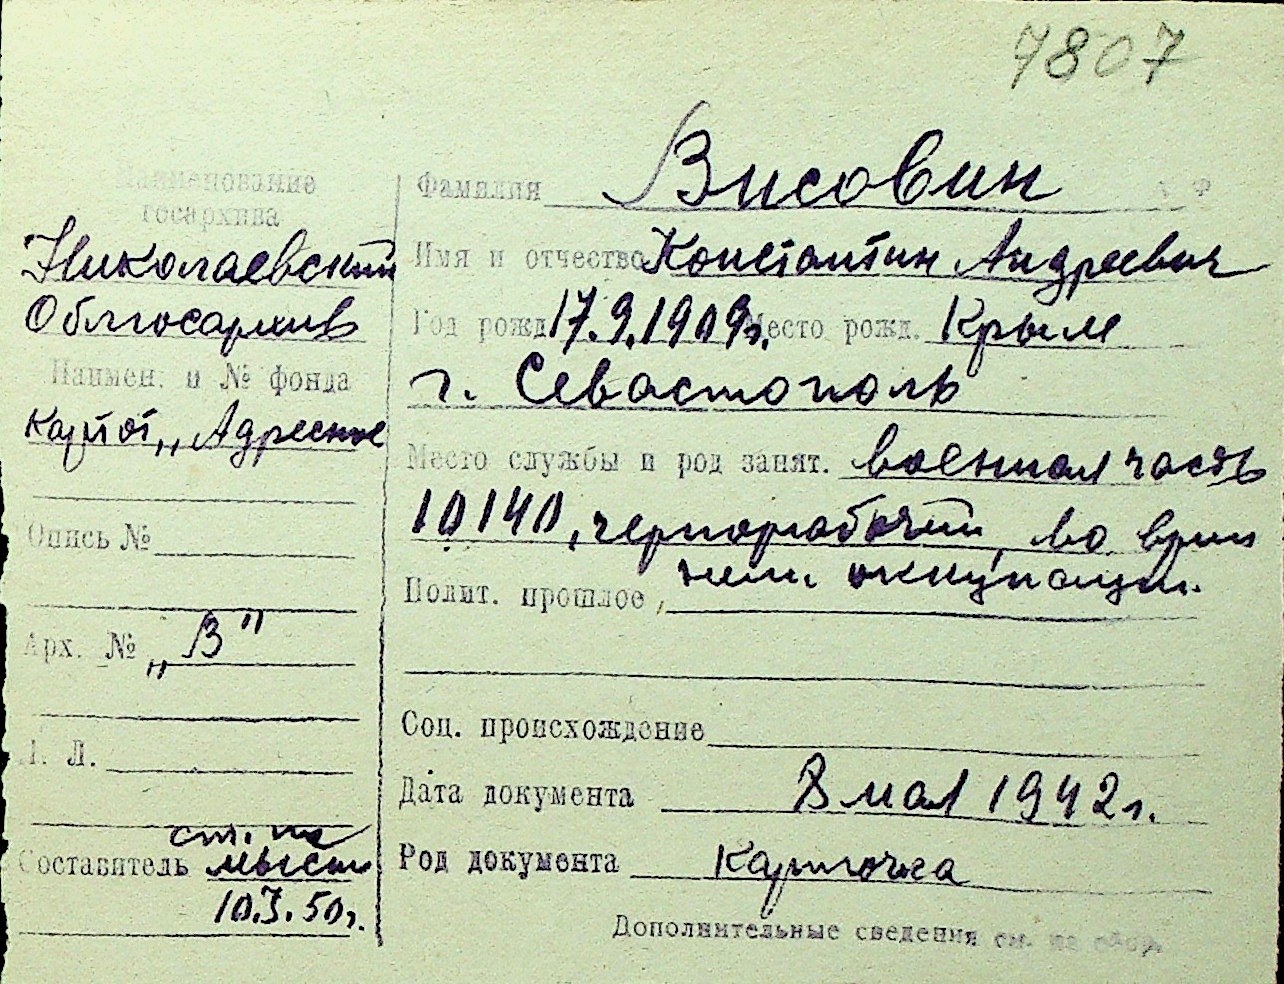 7807
Наименование
госархива
Николаевский
Облгосархив
Наимен. и № фонда
Картот. „Адресное
Опись №
Арх. № „В"
Л. Л.
Составитель
10.I.50г.
Фамилия Висовин
Имя и отчество Константин Андреевич
Год рожд 17.9.1909г. Место рожд. Крым
г. Севастополь
Место службы и род занят. военная часть
10140, чернорабочий, во вре
мени оккупации.
Полит. прошлое
Соц. происхождение
Дата документа 8 мая 1942г.
Род документа Карточка
Дополнительные сведения см. на обор.